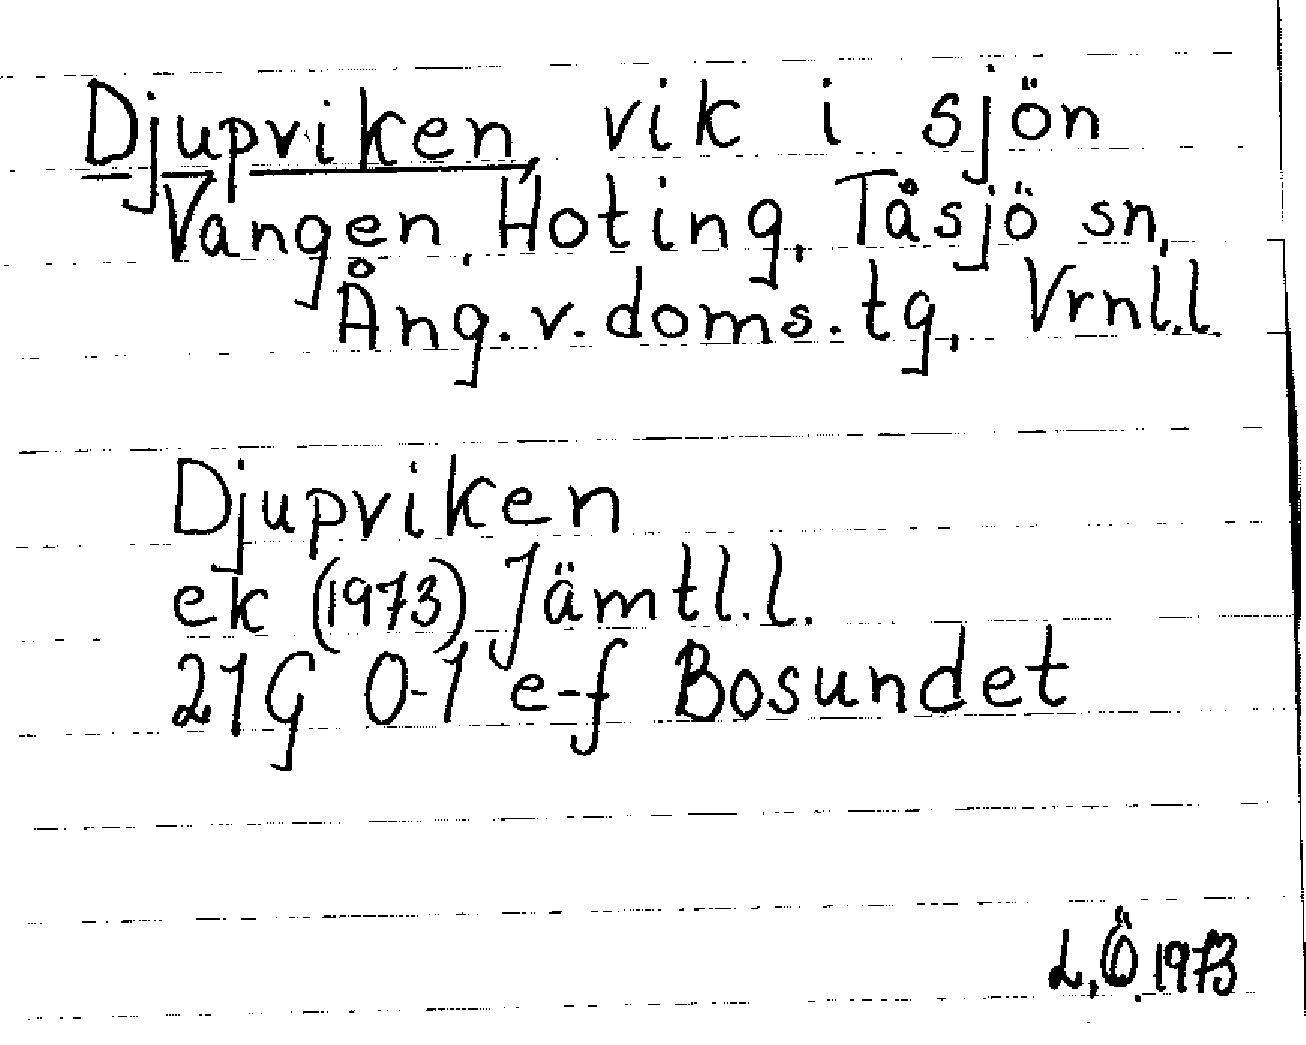 Djupviken, vik i sjön
Vängen, Hoting, Tåsjö sn,
Ång.v.doms.tg, Vrnl.l.
Djupviken
ek (1973) Jämtl.l.
21G 0-1 e-f Bosundet
L.Ö.1973